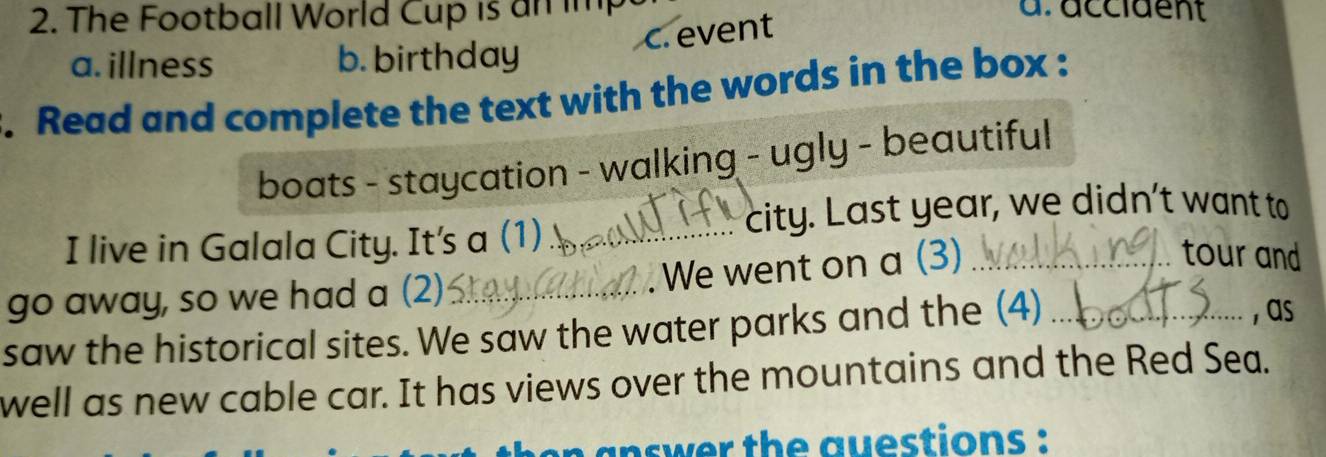 2. The Football World Cup is an
a. illness b. birthday c. event d. accident
. Read and complete the text with the words in the box :
boats - staycation - walking - ugly - beautiful
I live in Galala City. It's a (1) beautiful city. Last year, we didn't want to
go away, so we had a (2) staycation. We went on a (3) walking tour and
saw the historical sites. We saw the water parks and the (4) boats, as
well as new cable car. It has views over the mountains and the Red Sea.
text, then answer the questions :